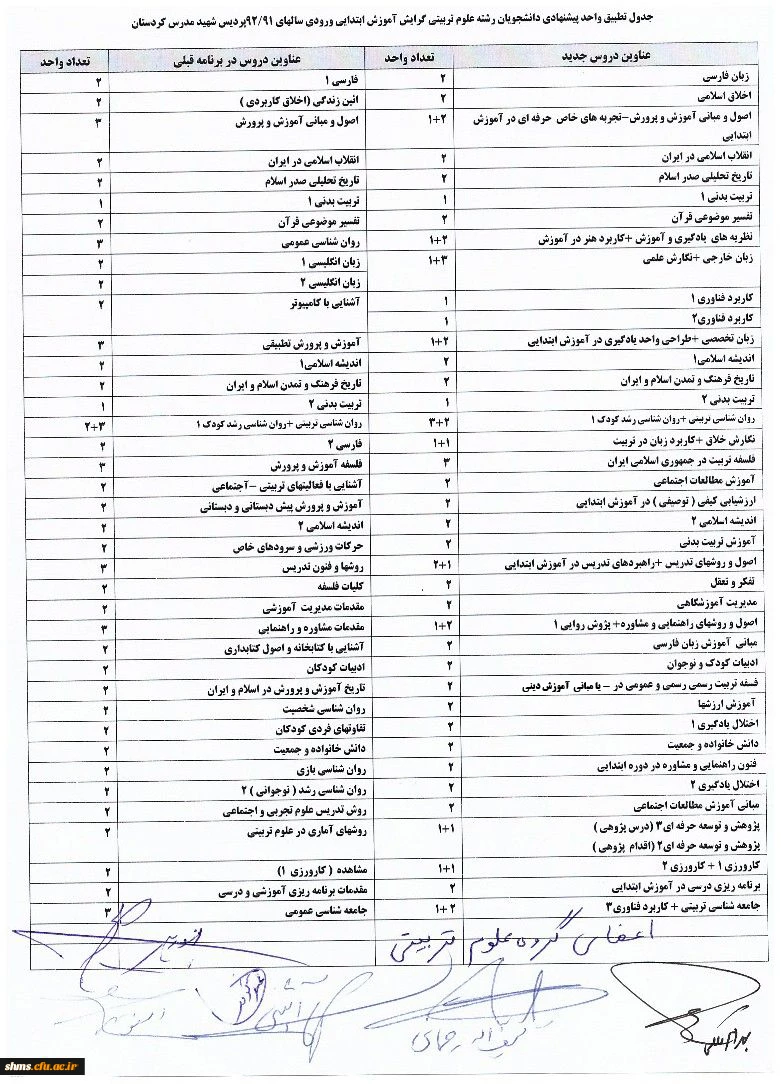 جدول تطبیق واحد پیشنهادی دانشجویان رشته علوم تربیتی گرایش آموزش ابتدایی ورودی سالهای ۹۲/۹۱پردیس شهید مدرس کردستان
عناوین دروس جدید تعداد واحد عناوین دروس در برنامه قبلی تعداد واحد
زبان فارسی ۲ فارسی ۱ ۲
اخلاق اسلامی ۲ ائین زندگی (اخلاق کاربردی ) ۲
اصول و مبانی آموزش و پرورش-تجربه های خاص حرفه ای در آموزش ۱+۲ اصول و مبانی آموزش و پرورش ۳
ابتدایی
انقلاب اسلامی در ایران ۲ انقلاب اسلامی در ایران ۲
تاریخ تحلیلی صدر اسلام ۲ تاریخ تحلیلی صدر اسلام ۲
تربیت بدنی ۱ ۱ تربیت بدنی ۱ ۱
تفسیر موضوعی قرآن ۲ تفسیر موضوعی قرآن ۲
نظریه های یادگیری و آموزش +کاربرد هنر در آموزش ۱+۲ روان شناسی عمومی ۳
زبان خارجی +نگارش علمی ۱+۳ زبان انگلیسی ۱ ۲
زبان انگلیسی ۲ ۲
کاربرد فناوری ۱ ۱ آشنایی با کامپیوتر ۲
کاربرد فناوری۲ ۱
زبان تخصصی +طراحی واحد یادگیری در آموزش ابتدایی ۱+۲ آموزش و پرورش تطبیقی ۳
اندیشه اسلامی۱ ۲ اندیشه اسلامی۱ ۲
تاریخ فرهنگ و تمدن اسلام و ایران ۲ تاریخ فرهنگ و تمدن اسلام و ایران ۲
تربیت بدنی ۲ ۱ تربیت بدنی ۲ ۱
روان شناسی تربیتی +روان شناسی رشد کودک ۱ ۳+۲ روان شناسی تربیتی +روان شناسی رشد کودک ۱ ۲+۳
نگارش خلاق +کاربرد زبان در تربیت ۱+۱ فارسی ۲ ۲
فلسفه تربیت در جمهوری اسلامی ایران ۳ فلسفه آموزش و پرورش ۳
آموزش مطالعات اجتماعی ۲ آشنایی با فعالیتهای تربیتی -آجتماعی ۲
ارزشیابی کیفی ( توصیفی ) در آموزش ابتدایی ۲ آموزش و پرورش پیش دبستانی و دبستانی ۲
اندیشه اسلامی ۲ ۲ اندیشه اسلامی ۲ ۲
آموزش تربیت بدنی ۲ حرکات ورزشی و سرودهای خاص ۲
اصول و روشهای تدریس +راهبردهای تدریس در آموزش ابتدایی ۲+۱ روشها و فنون تدریس ۳
تفکر و تعقل ۲ کلیات فلسفه ۲
مدیریت آموزشگاهی ۲ مقدمات مدیریت آموزشی ۲
اصول و روشهای راهنمایی و مشاوره+ پژوش روایی ۱ ۱+۲ مقدمات مشاوره و راهنمایی ۳
مبانی آموزش زبان فارسی ۲ آشنایی با کتابخانه و اصول کتابداری ۲
ادبیات کودک و نوجوان ۲ ادبیات کودکان ۲
فسفه تربیت رسمی رسمی و عمومی در - یا مبانی آموزش دینی ۲ تاریخ آموزش و پرورش در اسلام و ایران ۲
آموزش ارزشها ۲ روان شناسی شخصیت ۲
اختلال یادگیری ۱ ۲ تفاوتهای فردی کودکان ۲
دانش خانواده و جمعیت ۲ دانش خانواده و جمعیت ۲
فنون راهنمایی و مشاوره در دوره ابتدایی ۲ روان شناسی بازی ۲
اختلال یادگیری ۲ ۲ روان شناسی رشد ( نوجوانی ) ۲ ۲
مبانی آموزش مطالعات اجتماعی ۲ روش تدریس علوم تجربی و اجتماعی ۲
پژوهش و توسعه حرفه ای۳ (درس پژوهی ) ۱+۱ روشهای آماری در علوم تربیتی ۲
پژوهش و توسعه حرفه ای۲ (اقدام پژوهی )
کارورزی ۱ + کارورزی ۲ ۱+۱ مشاهده ( کارورزی ۱) ۲
برنامه ریزی درسی در آموزش ابتدایی ۲ مقدمات برنامه ریزی آموزشی و درسی ۲
جامعه شناسی تربیتی + کاربرد فناوری۳ ۱+۲ جامعه شناسی عمومی ۳
اعضای گروه علوم تربیتی
shms.cfu.ac.ir